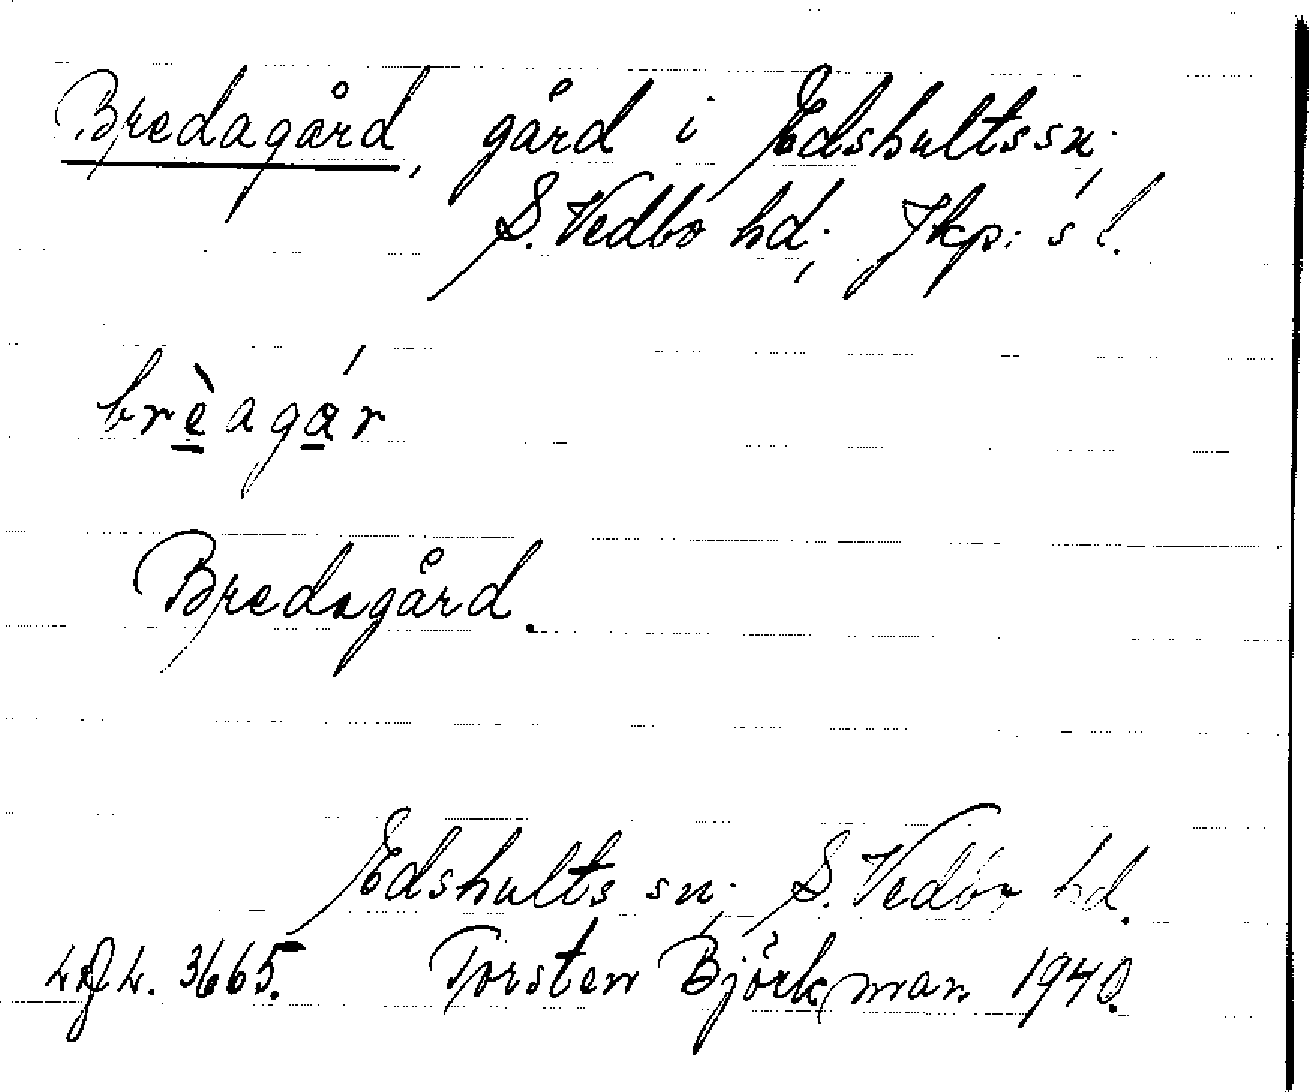 Bredagård, gård i Edshults sn;
S. Vedbo hd; Jkp:s l.
brèagár
Bredagård.
Edshults sn; S. Vedbo hd.
3665. Torsten Björkman 1940.